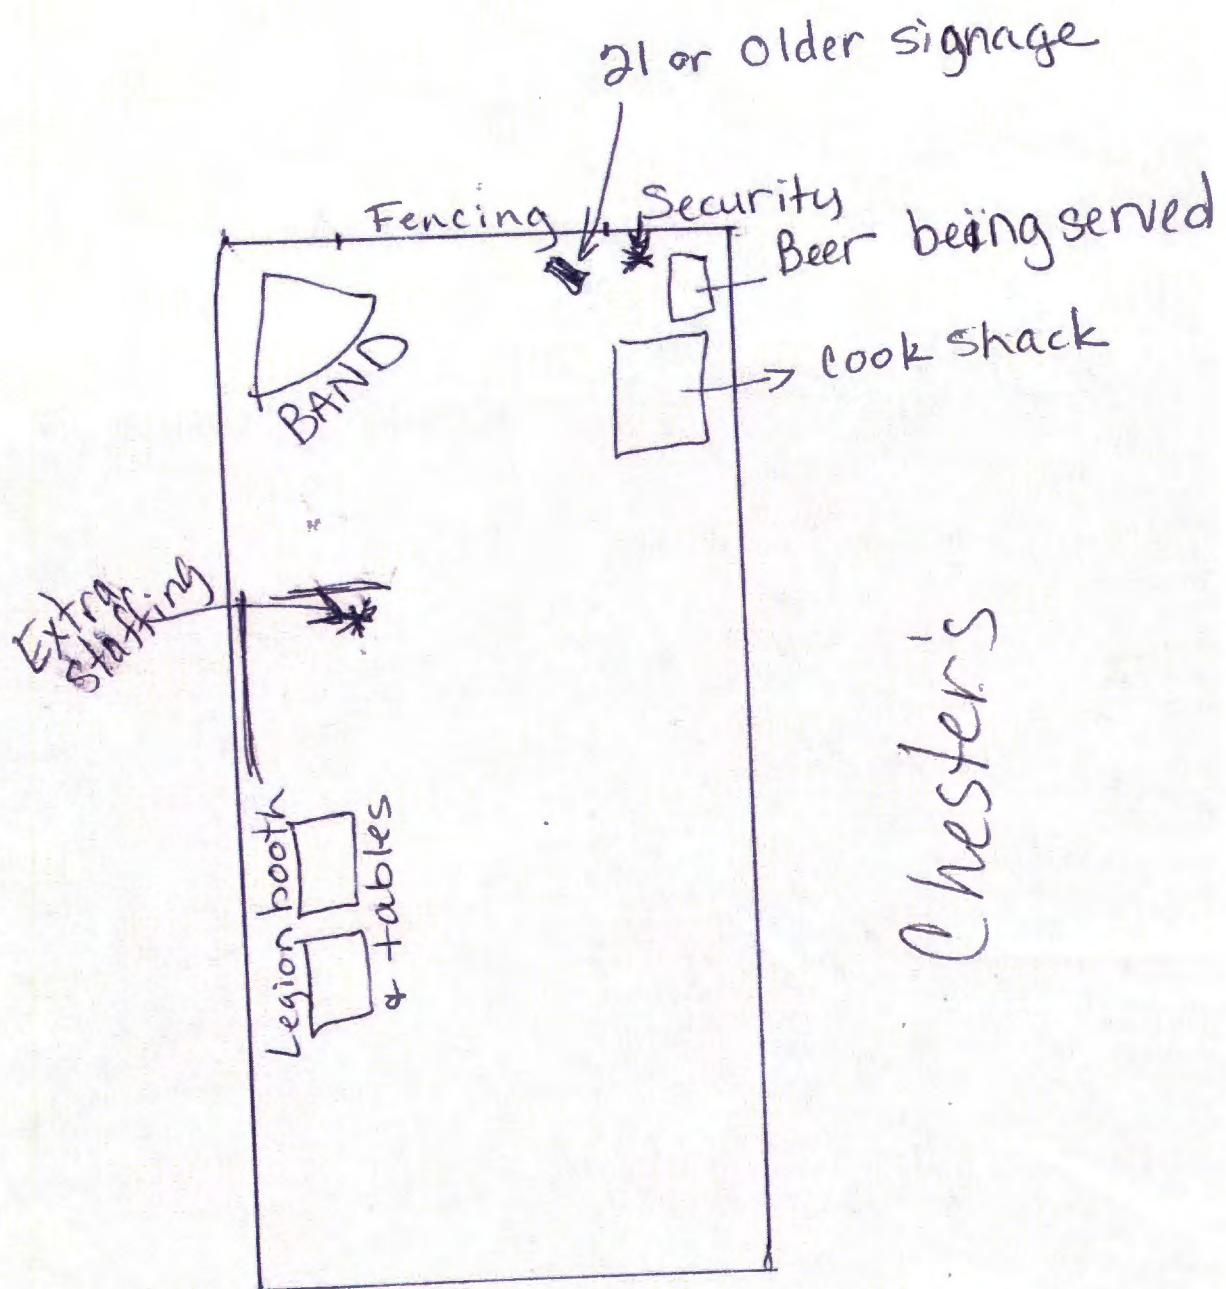 21 or older signage
Fencing
Security
Beer being served
Cook shack
BAND
Extra
Staffing
Legion booth
& tables
Chester's